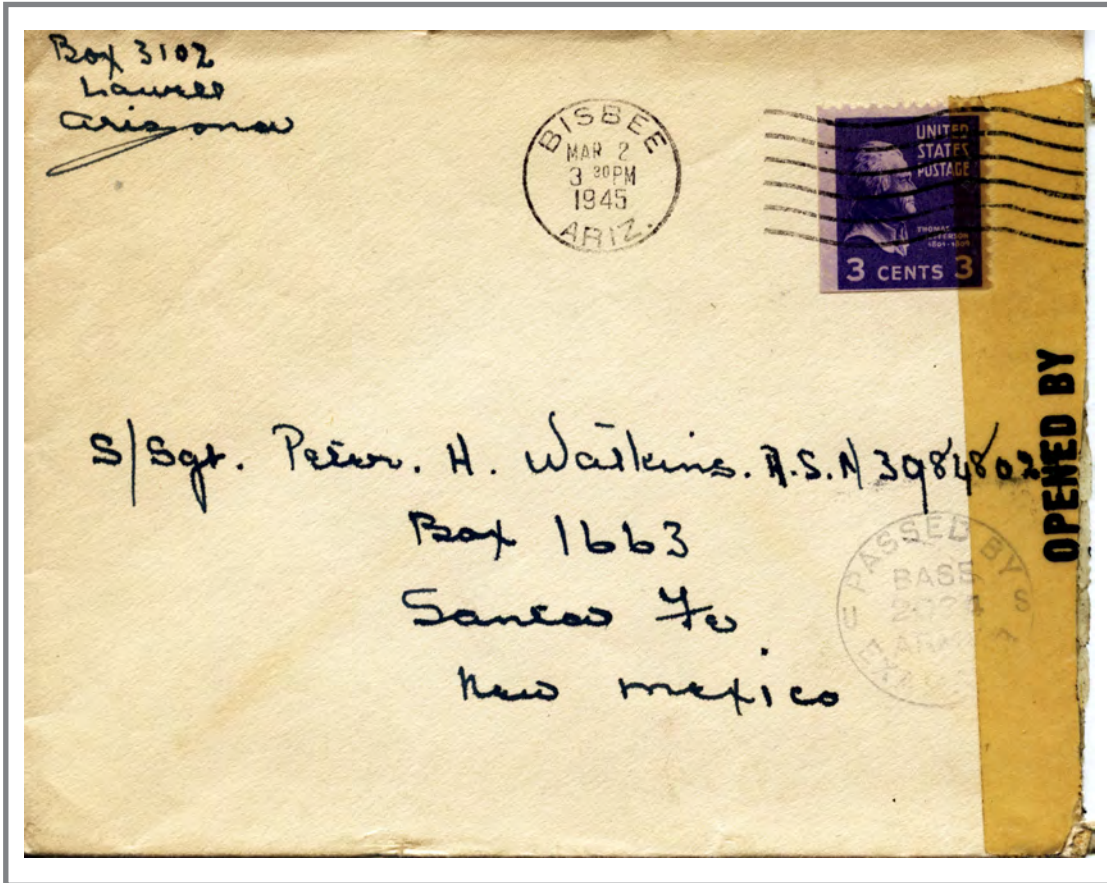 Box 3102
Lowell
Arizona
BISBEE
MAR 2
3 30 PM
1945
ARIZ.
UNITED
STATES
POSTAGE
THOMAS
JEFFERSON
1801-1809
3 CENTS 3
S/Sgt. Peter. H. Watkins. A.S.N 3984802
Box 1663
Santa Fe
New Mexico
OPENED BY
PASSED BY
BASE
ARMY
U S